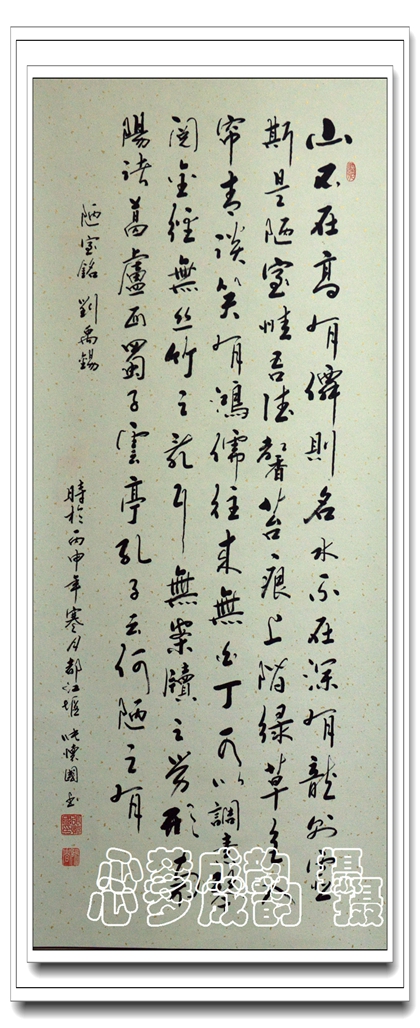 山不在高有僊則名水不在深有龍則靈
斯是陋室惟吾德馨苔痕上階緑草色入
帘青談笑有鴻儒往来無白丁可以調素琴
閲金經無丝竹之乱耳無案牘之勞形南
陽诸葛廬西蜀子雲亭孔子云何陋之有
陋室銘 劉禹錫
時於丙申年寒月都江堰懷國书
心梦成韵 摄